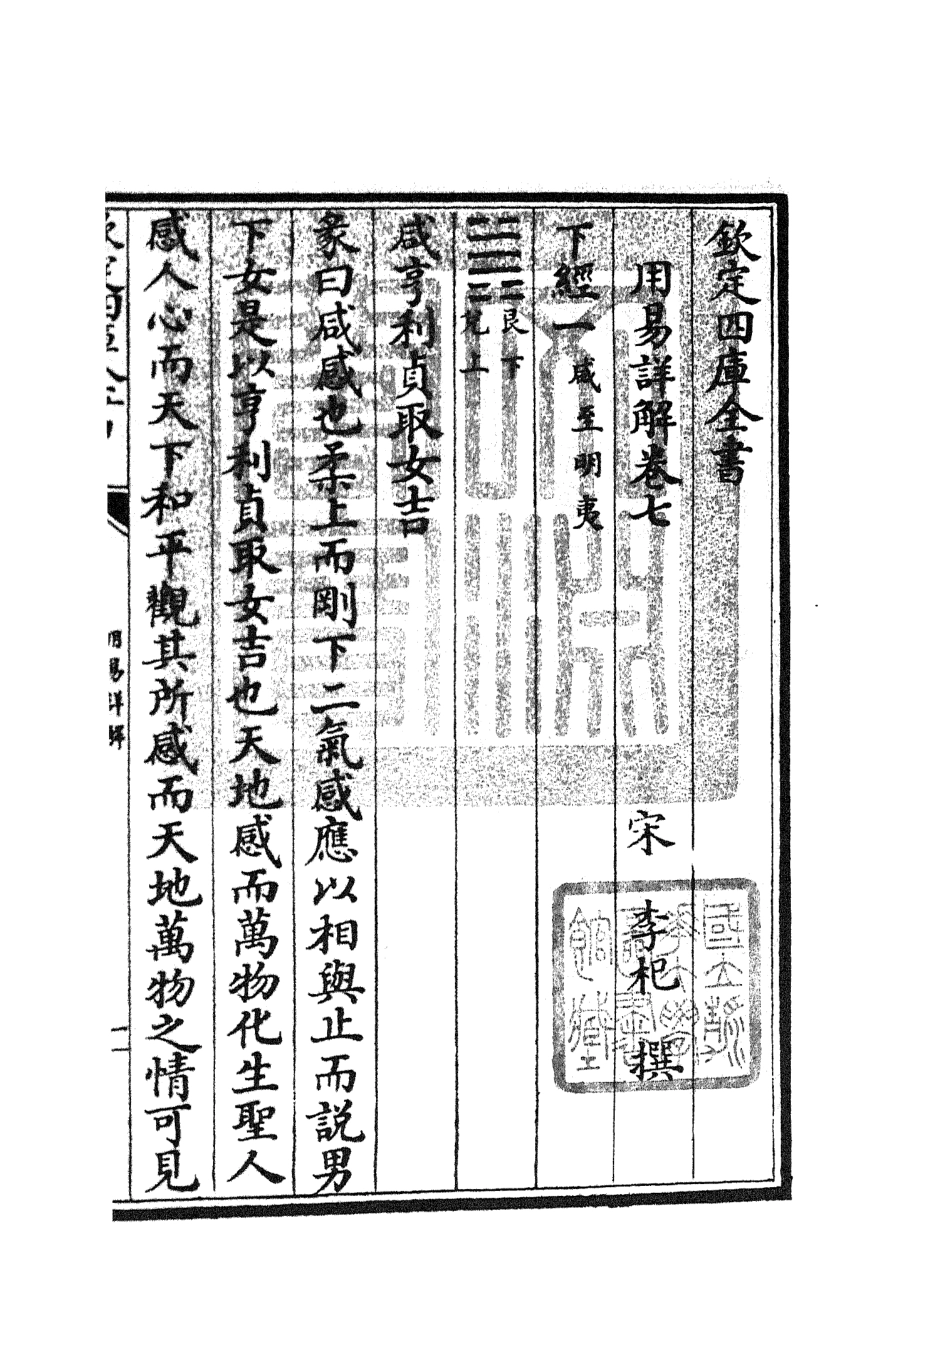 欽定四庫全書
用易詳解卷七
宋 李杞 撰
下經一咸至明夷
䷞艮下兌上
咸亨利貞取女吉
彖曰咸感也柔上而剛下二氣感應以相與止而説男
下女是以亨利貞取女吉也天地感而萬物化生聖人
感人心而天下和平觀其所感而天地萬物之情可見
用易詳解